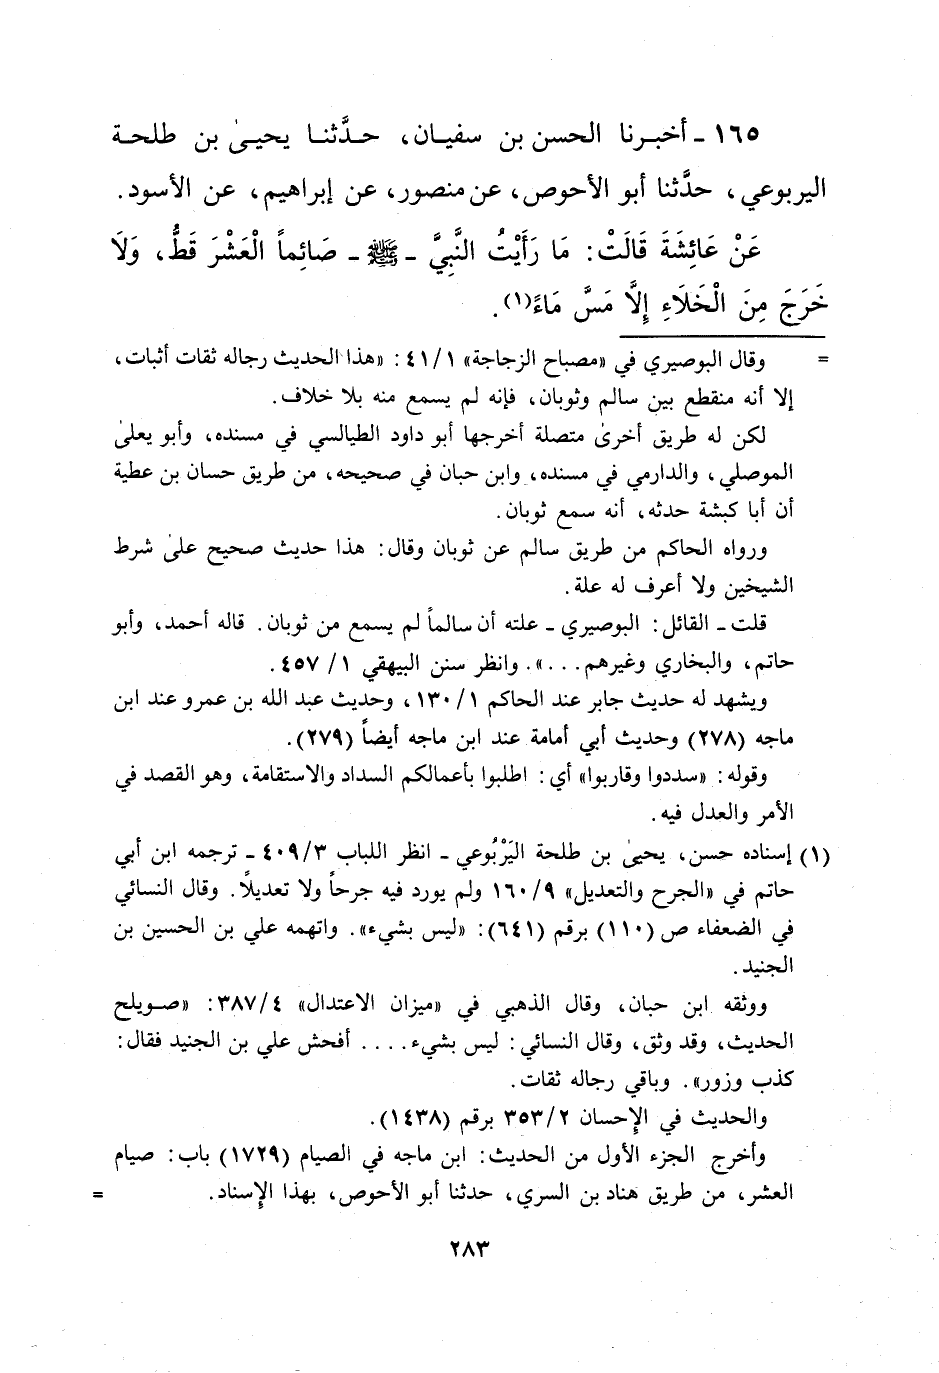 ١٦٥ - أخبرنا الحسن بن سفيان، حدَّثنا يحيىٰ بن طلحة
اليربوعي، حدَّثنا أبو الأحوص، عن منصور، عن إبراهيم، عن الأسود.
عَنْ عَائِشَةَ قَالَتْ: مَا رَأَيْتُ النَّبِيَّ - ﷺ - صَائِماً الْعَشْرَ قَطُّ، وَلَا
خَرَجَ مِنَ الْخَلَاءِ إِلَّا مَسَّ مَاءً(١).
= وقال البوصيري في «مصباح الزجاجة» ٤١/١: «هذا الحديث رجاله ثقات أثبات،
إلا أنه منقطع بين سالم وثوبان، فإنه لم يسمع منه بلا خلاف.
لكن له طريق أخرىٰ متصلة أخرجها أبو داود الطيالسي في مسنده، وأبو يعلىٰ
الموصلي، والدارمي في مسنده، وابن حبان في صحيحه، من طريق حسان بن عطية
أن أبا كبشة حدثه، أنه سمع ثوبان.
ورواه الحاكم من طريق سالم عن ثوبان وقال: هذا حديث صحيح علىٰ شرط
الشيخين ولا أعرف له علة.
قلت - القائل: البوصيري - علته أن سالماً لم يسمع من ثوبان. قاله أحمد، وأبو
حاتم، والبخاري وغيرهم...». وانظر سنن البيهقي ١/ ٤٥٧.
ويشهد له حديث جابر عند الحاكم ١٣٠/١، وحديث عبد الله بن عمرو عند ابن
ماجه (٢٧٨) وحديث أبي أمامة عند ابن ماجه أيضاً (٢٧٩).
وقوله: «سددوا وقاربوا» أي: اطلبوا بأعمالكم السداد والاستقامة، وهو القصد في
الأمر والعدل فيه.
(١) إسناده حسن، يحيىٰ بن طلحة اليَرْبُوعي - انظر اللباب ٤٠٩/٣ - ترجمه ابن أبي
حاتم في «الجرح والتعديل» ١٦٠/٩ ولم يورد فيه جرحاً ولا تعديلاً. وقال النسائي
في الضعفاء ص (١١٠) برقم (٦٤١): «ليس بشيء». واتهمه علي بن الحسين بن
الجنيد.
ووثقه ابن حبان، وقال الذهبي في «ميزان الاعتدال» ٣٨٧/٤: «صويلح
الحديث، وقد وثق، وقال النسائي: ليس بشيء.... أفحش علي بن الجنيد فقال:
كذب وزور». وباقي رجاله ثقات.
والحديث في الإحسان ٣٥٣/٢ برقم (١٤٣٨).
وأخرج الجزء الأول من الحديث: ابن ماجه في الصيام (١٧٢٩) باب: صيام
العشر، من طريق هناد بن السري، حدثنا أبو الأحوص، بهذا الإسناد. =
٢٨٣